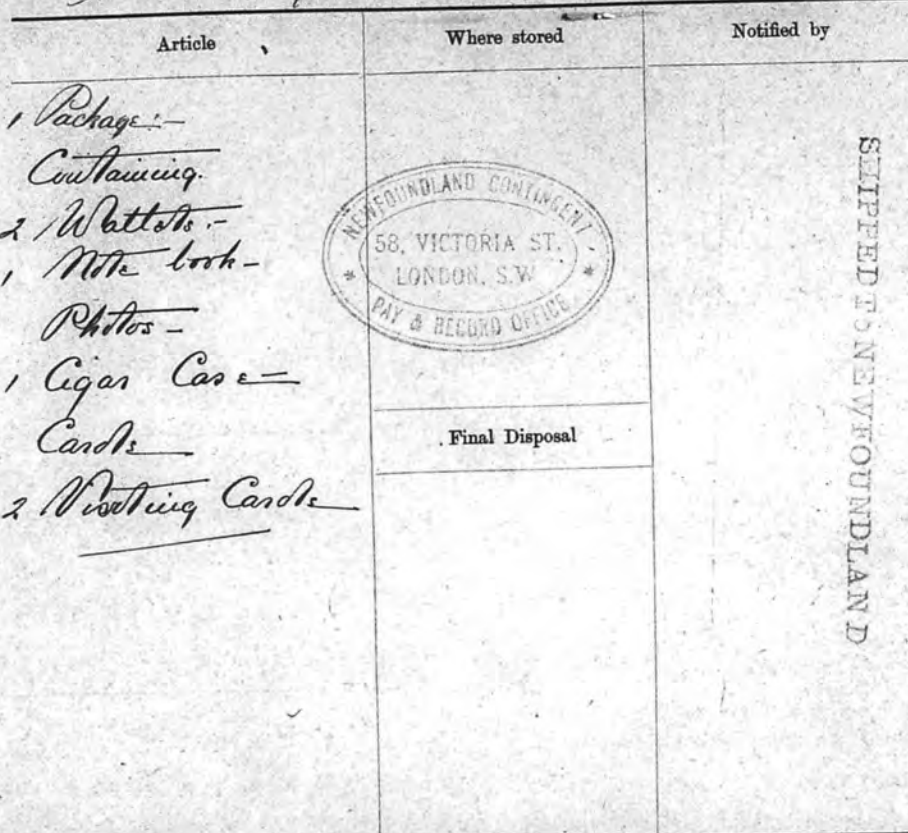 Article
Where stored
Notified by
1 Package:-
Containing.
2 Wallets:-
1 Note book-
Photos-
1 Cigar Case-
Cards
2 Visiting Cards
NEWFOUNDLAND CONTINGENT
58, VICTORIA ST.
LONDON, S.W.
* PAY & RECORD OFFICE *
Final Disposal
SHIPPED TO NEWFOUNDLAND